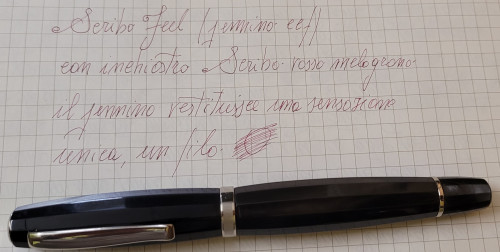 Scribo Feel (pennino eef)
con inchiostro Scribo rosso melograno
il pennino restituisce una sensazione
unica, un filo.